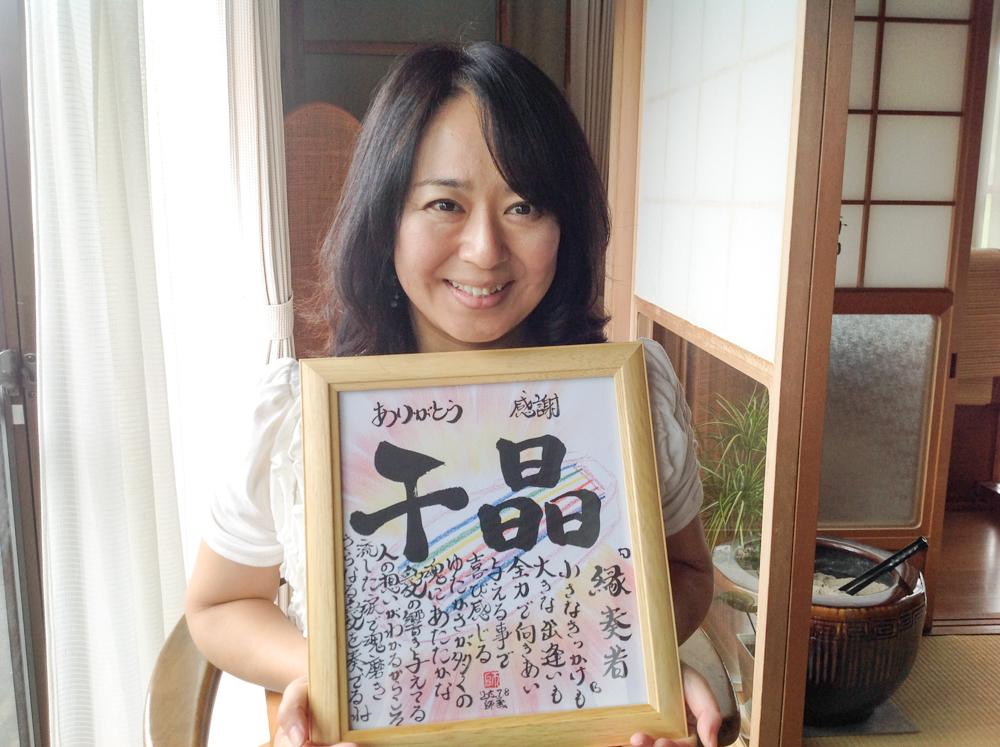 ありがとう 感謝
千晶
『縁奏者』
小さなきっかけも
大きな出逢いも
全力で向きあい
与える事で
喜び感じる
ゆたかさが多くの
魂にあたたかな
愛の響き与えてる
人の想いがわかるからこそ
流した涙で魂磨き
さらなる愛を奏でるね